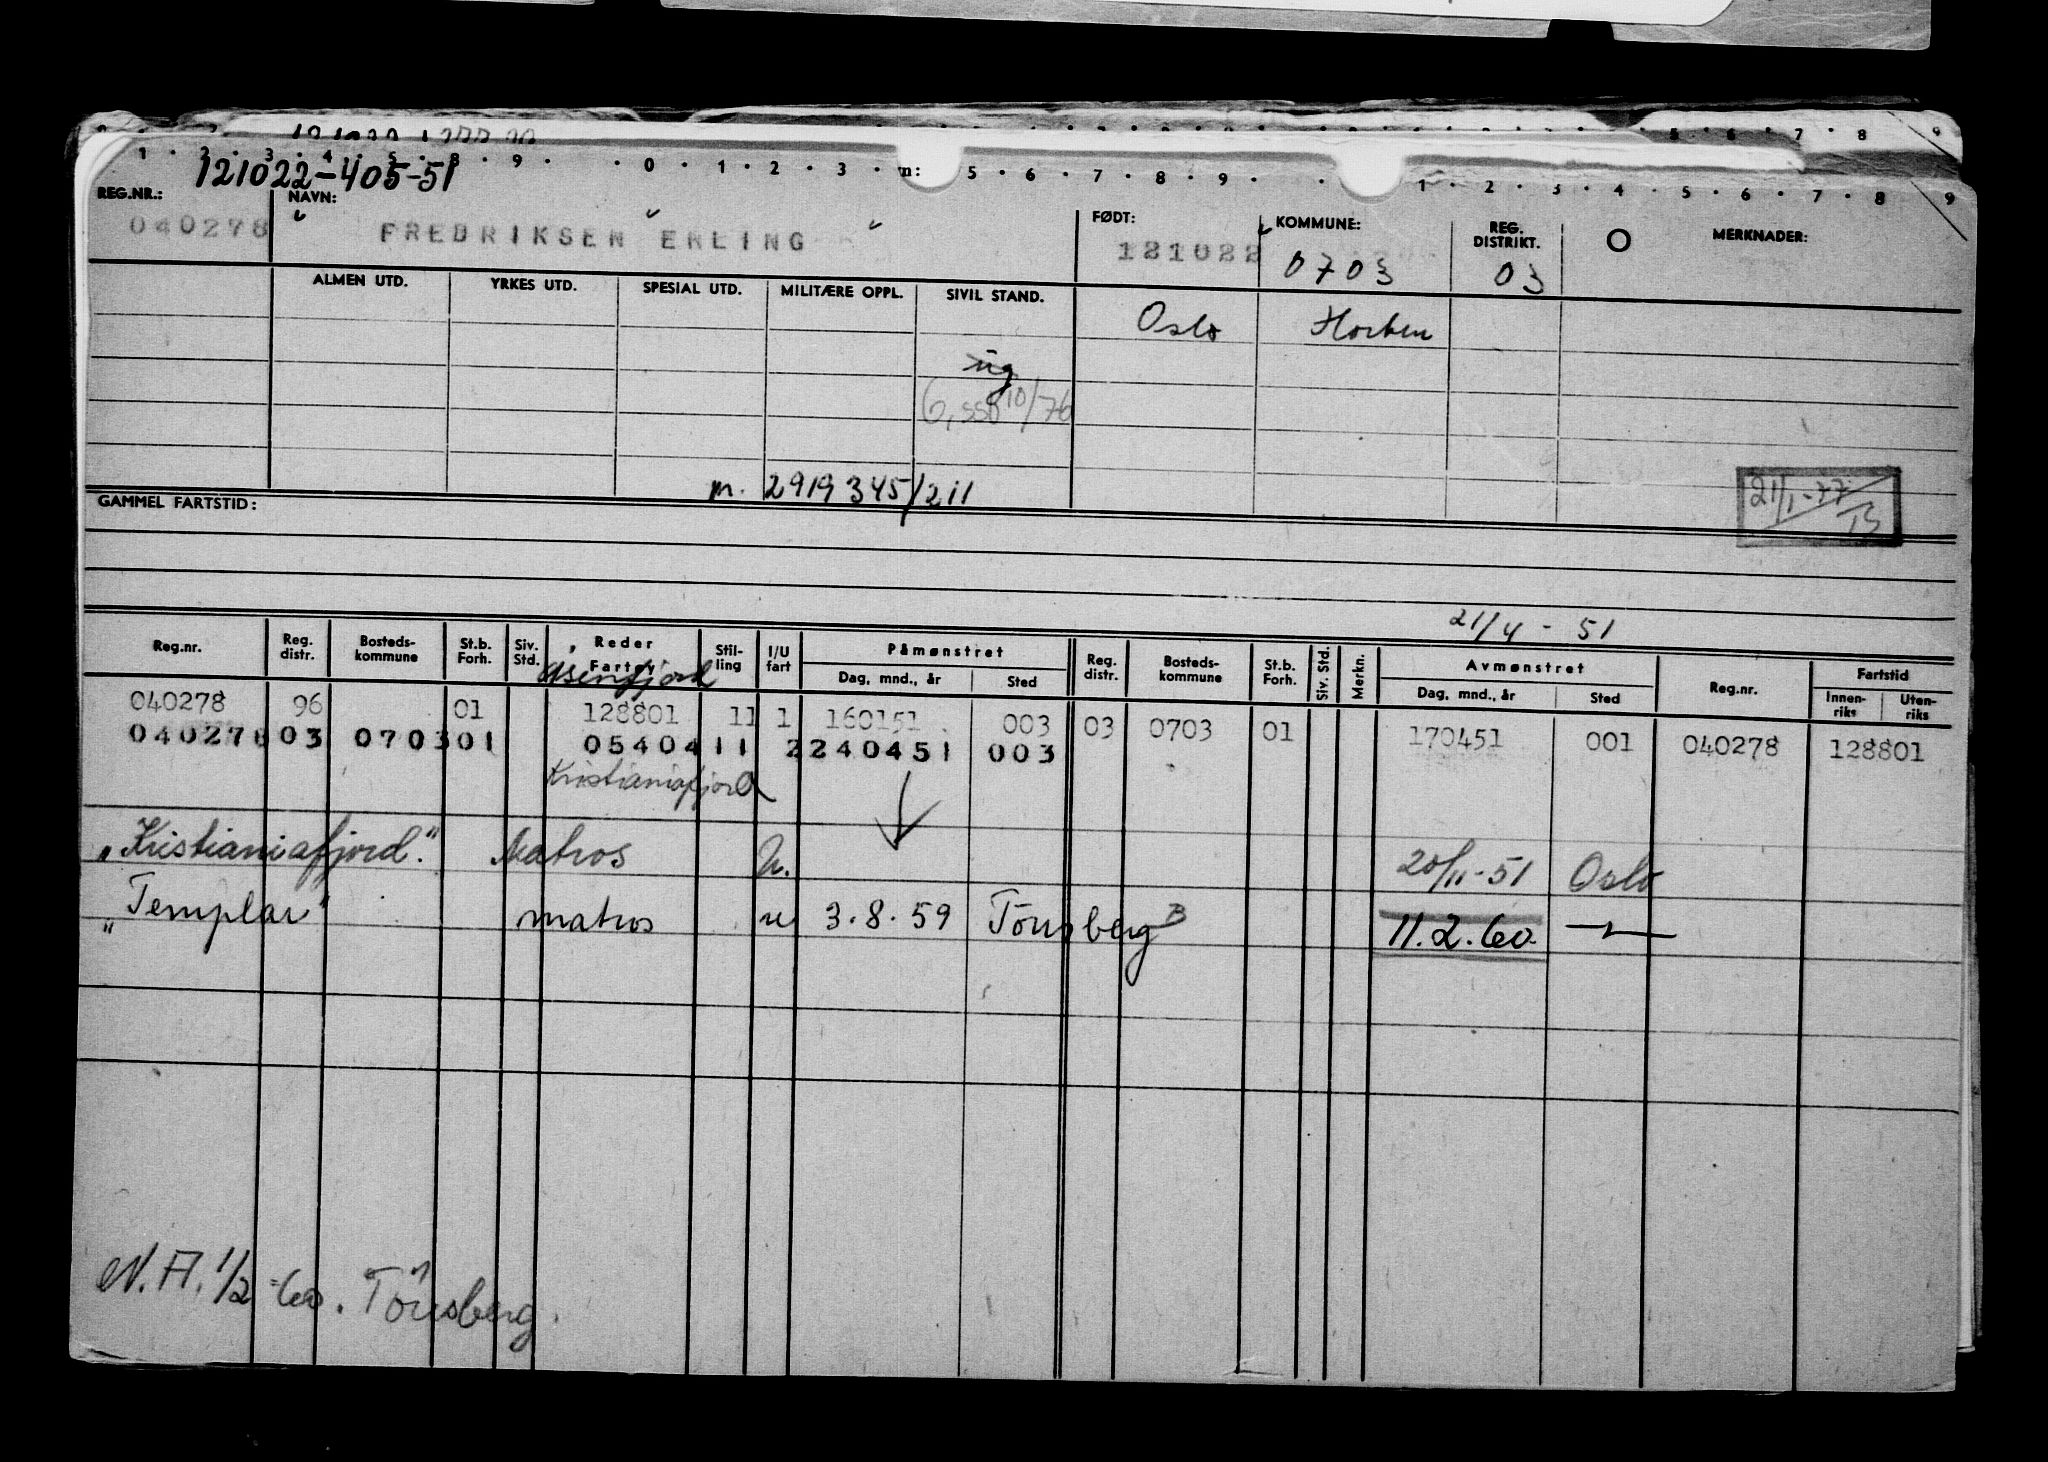 1 · 2 · 3 · 4 · 5 · 8 · 9 · · 0 · 1 · 2 · 3 · n: 5 · 6 · 7 · 8 · 9 · · 1 · 2 · 3 · 4 · 5 · 6 · 7 · 8 · 9
121022-405-51
REG.NR.: NAVN: FØDT: KOMMUNE: REG. DISTRIKT. O MERKNADER:
040278 FREDRIKSEN ERLING 121022 0703 03
ALMEN UTD. YRKES UTD. SPESIAL UTD. MILITÆRE OPPL. SIVIL STAND.
Oslo Horten
ug
10/76
m. 2919345/211
21/1-77
GAMMEL FARTSTID:
21/4 - 51
Reg.nr. Reg. distr. Bosteds-kommune St.b. Forh. Siv. Std. Reder Fartøy Stil-ling I/U fart Påmønstret Dag, mnd., år Sted Reg. distr. Bosteds-kommune St.b. Forh. Siv. Std. Merkn. Avmønstret Dag, mnd., år Sted Reg.nr. Fartstid Innen-riks Uten-riks
040278 96 01 128801 11 1 160151 003 03 0703 01 170451 001 040278 128801
040278 03 0703 01 05404 11 2 240451 003
Kristianiafjord
"Kristianiafjord." Matros U. 20/11-51 Oslo
"Templar" matros u 3.8.59 Tönsberg B 11.2.60
N.A. 1/2 -60. Tönsberg.